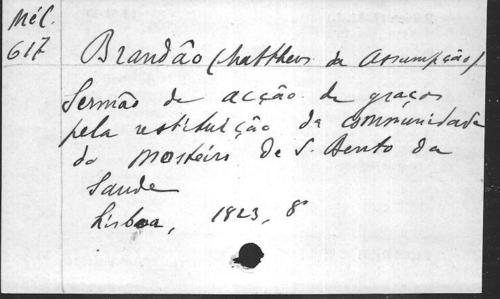 Mél.
617
Brandão (Mattheus da Assumpção)
Sermão de acção de graças
pela restituição da communidade
do Mosteiro de S. Bento da
Saude
Lisboa, 1823, 8º